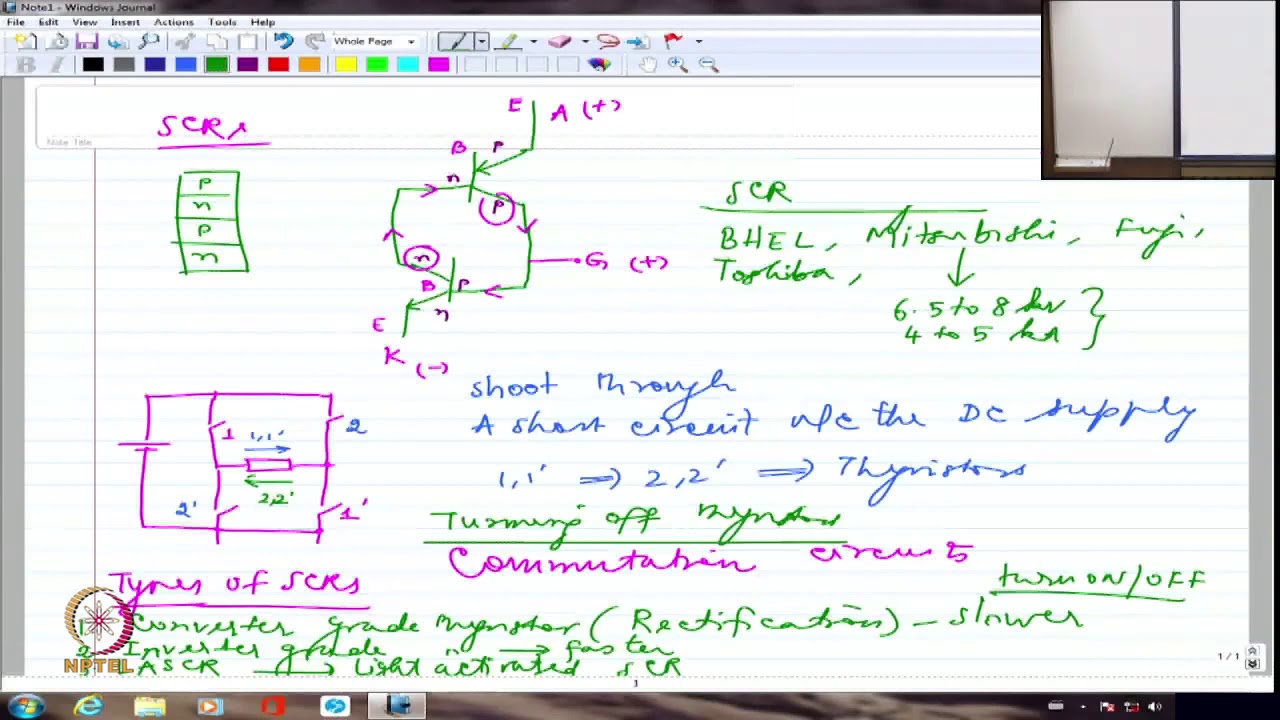 Note1 - Windows Journal
File Edit View Insert Actions Tools Help
Whole Page
B I
Note Title
SCRs
p
n
p
n
E A (+)
B P
n
P
n
G (+)
B P
n
E
K (-)
SCR
BHEL, Mitsubishi, Fuji,
Toshiba,
6.5 to 8 kV
4 to 5 kA
shoot through
A short circuit o/c the DC supply
1,1' ⇒ 2,2' ⇒ Thyristors
1
1,1'
2
2,2'
2'
1'
Turning off thyristors
Commutation circuits
Types of SCRs
turn ON/OFF
1. Converter grade thyristor (Rectification) - slower
2. Inverter grade " → faster
3. LASCR → light activated SCR
NPTEL
1 / 1
1